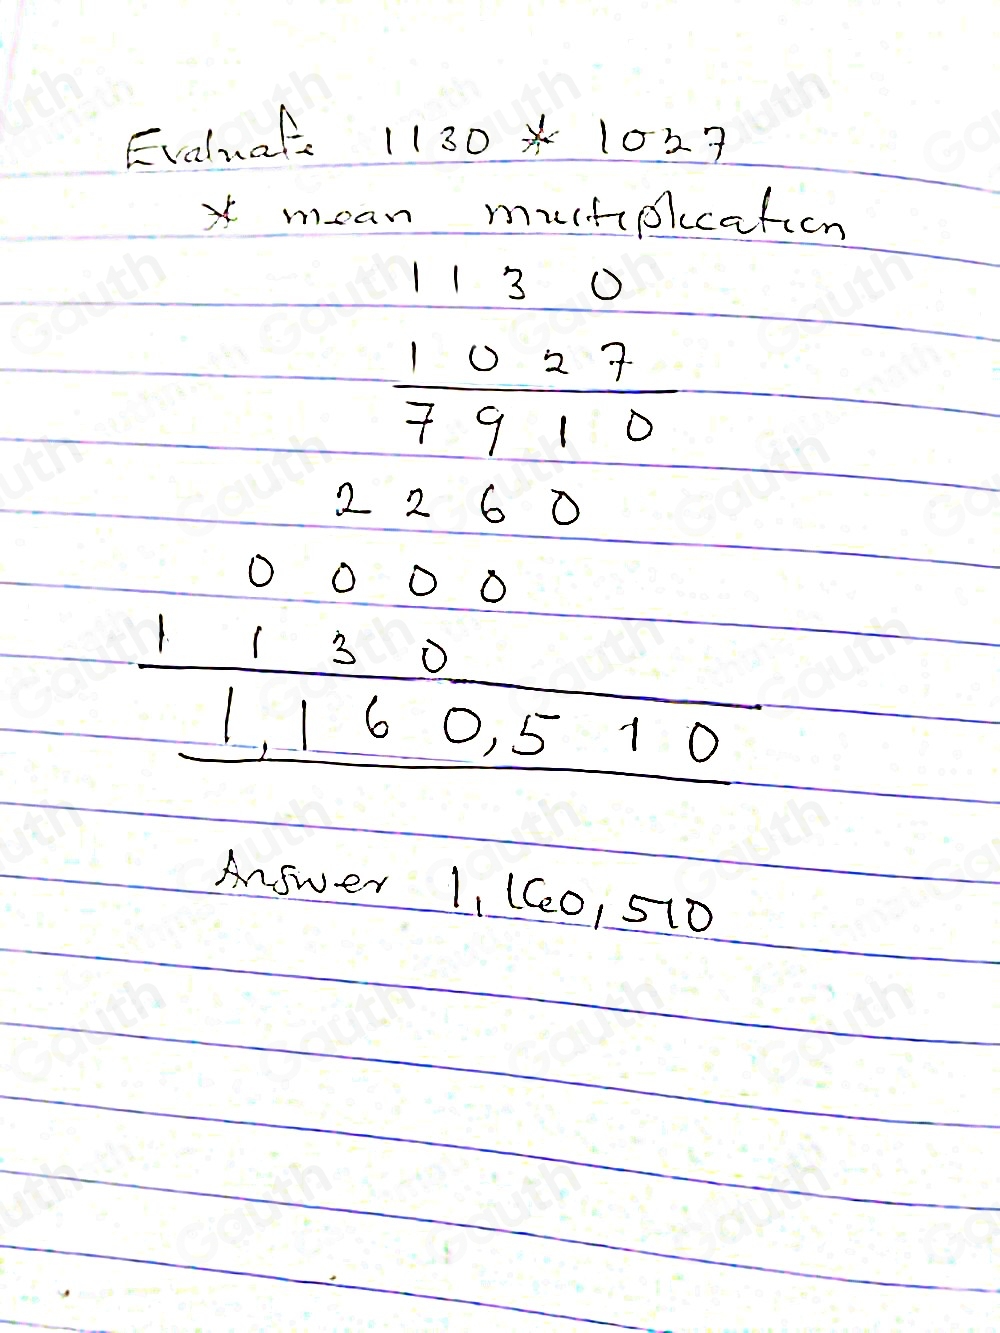 Evaluate 1130 * 1027
* mean multiplication
1 1 3 0
1 0 2 7
7 9 1 0
2 2 6 0
0 0 0 0
1 1 3 0
1,160,510
Answer 1,160,510